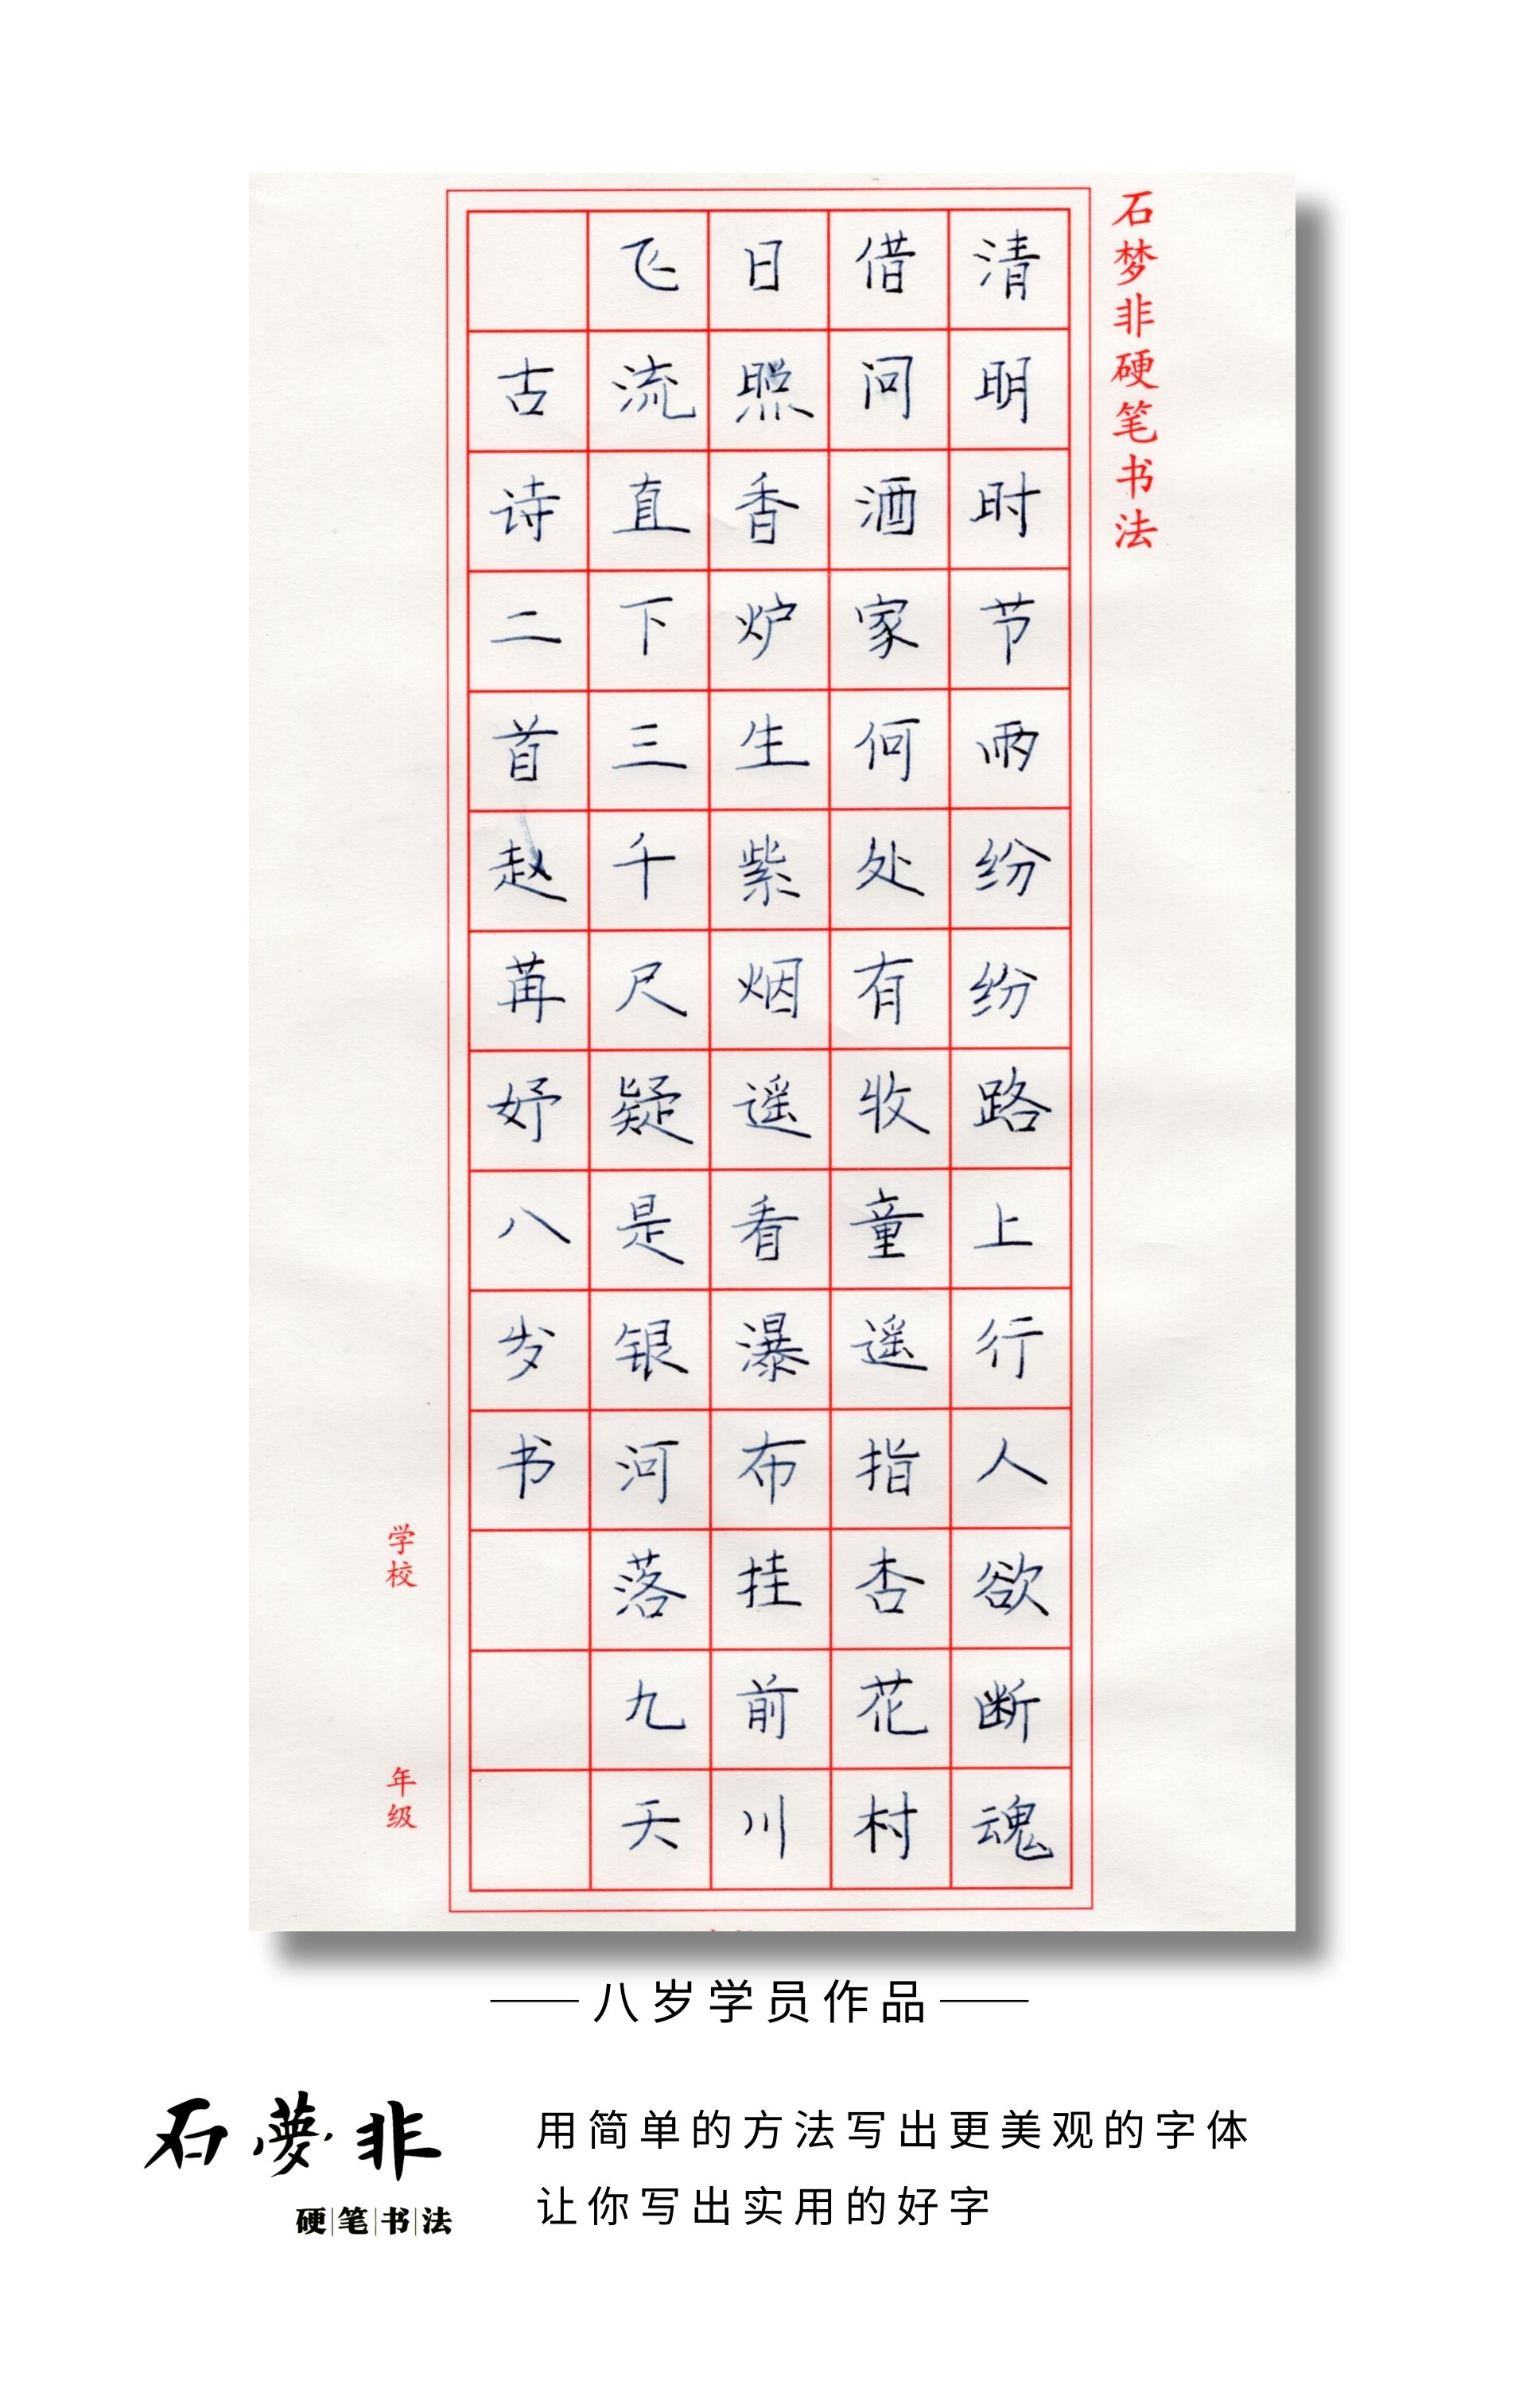 石梦非硬笔书法
清明时节雨纷纷路上行人欲断魂
借问酒家何处有牧童遥指杏花村
日照香炉生紫烟遥看瀑布挂前川
飞流直下三千尺疑是银河落九天
古诗二首赵苒妤八岁书
学校
年级
八岁学员作品
石夢非
硬笔书法
用简单的方法写出更美观的字体
让你写出实用的好字